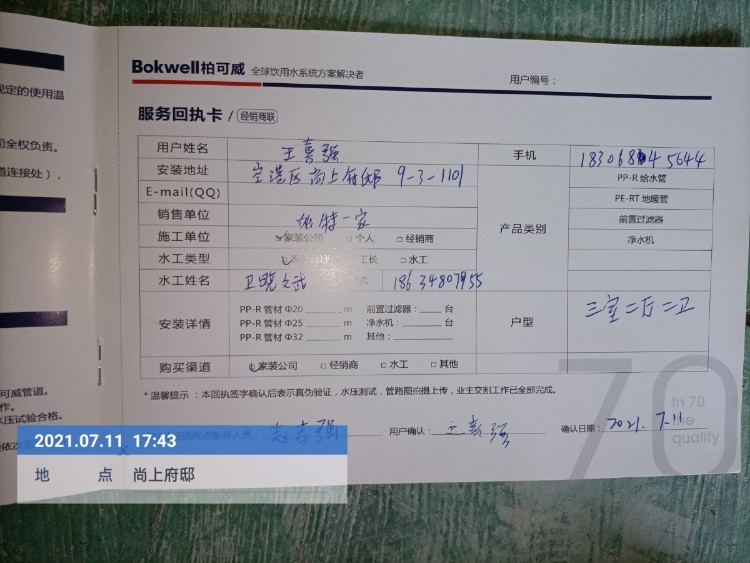 规定的使用温
司全权负责。
道连接处），
可威管道。
作。
水压试验合格。
Bokwell柏可威 全球饮用水系统方案解决者
用户编号：
服务回执卡 / 经销商联
用户姓名 王喜强 手机
安装地址 空港区尚上府邸 9-3-1101 PP-R 给水管
E-mail(QQ) PE-RT 地暖管
销售单位 产品类别 前置过滤器
施工单位 家装公司 □个人 □经销商 净水机
水工类型 工长 □水工
水工姓名 18634807955
安装详情 PP-R 管材 Φ20 m 前置过滤器： 台 户型 三室二厅二卫
PP-R 管材 Φ25 m 净水机： 台
PP-R 管材 Φ32 m 其他：
购买渠道 家装公司 □经销商 □水工 □其他
*温馨提示：本回执签字确认后表示真伪验证，水压测试，管路图拍摄上传，业主交割工作已全部完成。
服务人员： 赵志强 用户确认： 王喜强 确认日期： 2021. 7.11
70
In 70
the
quality
2021.07.11 17:43
地 点 尚上府邸